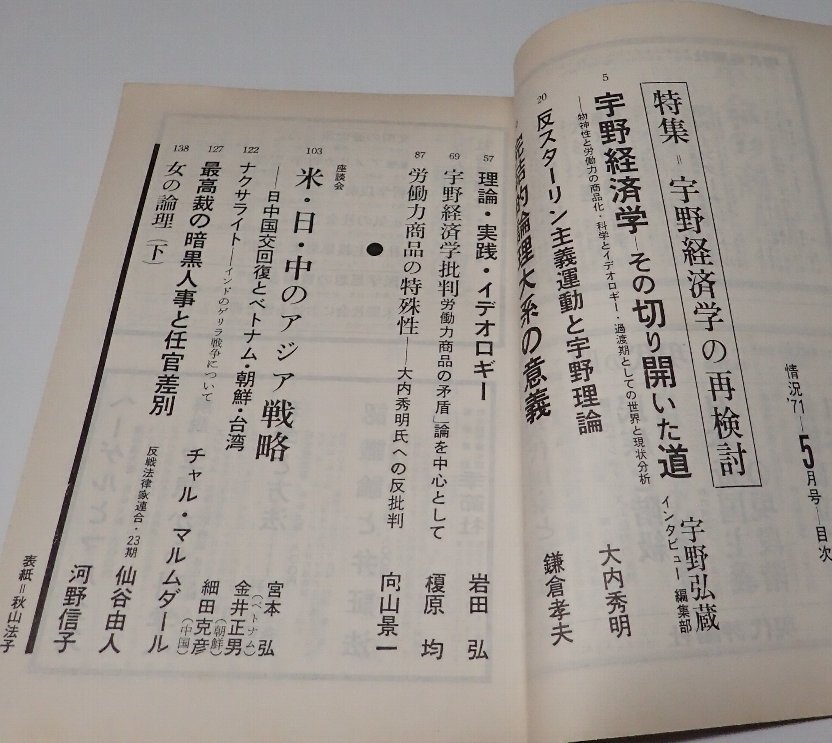 情況'71—5月号—目次
特集=宇野経済学の再検討
5 宇野経済学—その切り開いた道 宇野弘蔵
インタビュー 編集部
—物神性と労働力の商品化・科学とイデオロギー・過渡期としての世界と現状分析
20 反スターリン主義運動と宇野理論 大内秀明
完結的論理大系の意義 鎌倉孝夫
57 理論・実践・イデオロギー 岩田 弘
69 宇野経済学批判「労働力商品の矛盾」論を中心として 榎原 均
87 労働力商品の特殊性—大内秀明氏への反批判 向山景一
●
座談会
103 米・日・中のアジア戦略
—日中国交回復とベトナム・朝鮮・台湾
宮本 弘(ベトナム)
金井正男(朝鮮)
細田克彦(中国)
122 ナクサライト—インドのゲリラ戦争について チャル・マルムダール
127 最高裁の暗黒人事と任官差別 反戦法律家連合・23期 仙谷由人
138 女の論理(下) 河野信子
表紙=秋山法子